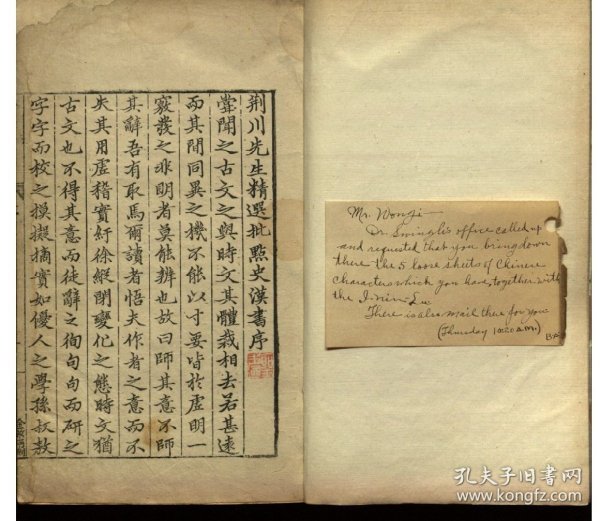 荆川先生精選批點史漢書序
嘗聞之古文之與時文其體裁相去若甚遠
而其間同異之機不能以寸要皆於虛明一
竅發之非明者莫能辨也故曰師其意不師
其辭吾有取焉爾讀者悟夫作者之意而不
失其用虛稽實紆徐縱閉變化之態時文猶
古文也不得其意而徒辭之徇句句而研之
字字而校之摸擬摘實如優人之學孫叔敖
Mr. Wongji
Dr. Swingle's office called up
and requested that you bring down
there the 5 loose sheets of Chinese
characters which you have, together with
the I-nin-Lu
There is also mail there for you
(Thursday 10:20 a.m.)
孔夫子旧书网
www.kongfz.com